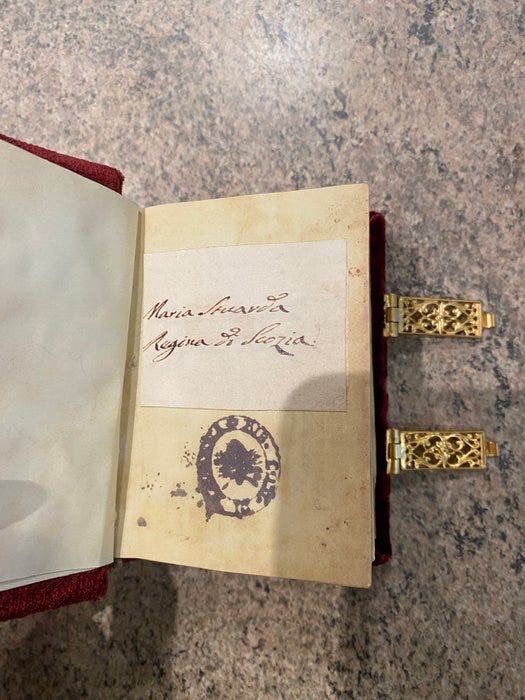 Maria Stuarda
Regina di Scozia.